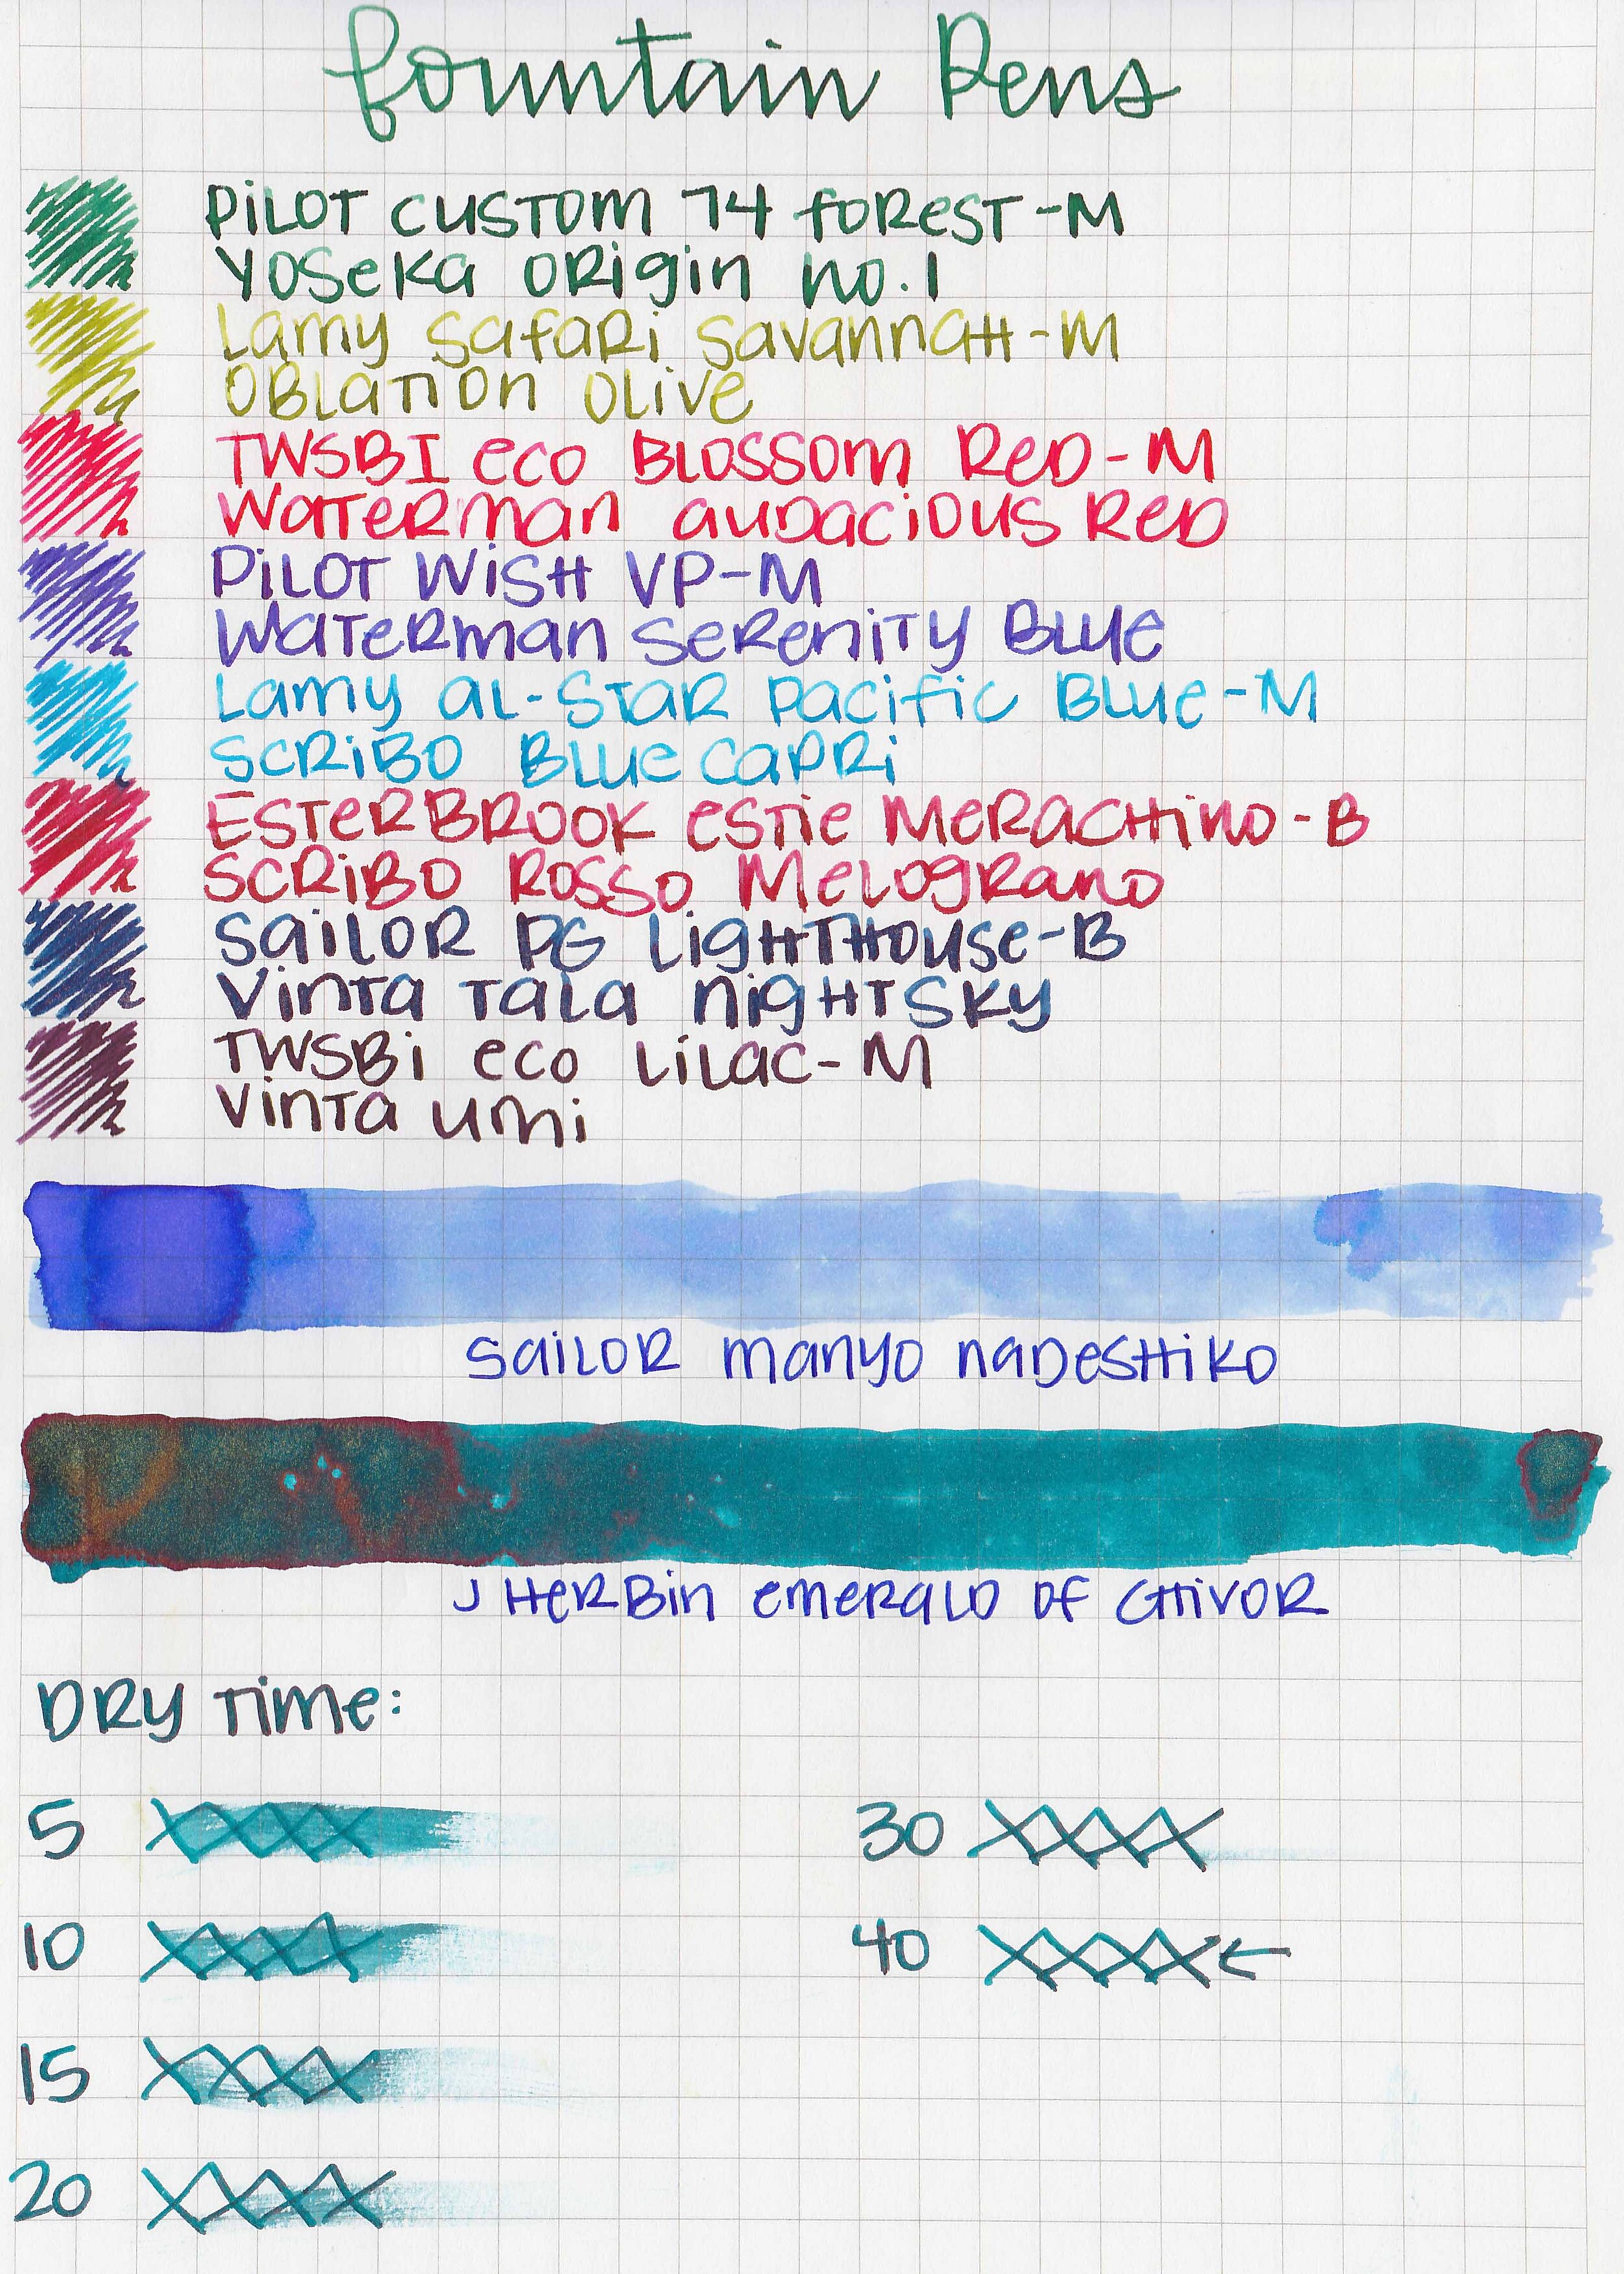 fountain Pens
PiLOT CUSTOM 74 fOREST-M
YOSEKA ORigin no.1
Lamy Safari Savannah-M
OBLATION OLIVE
TWSBI eco BLOSSOM RED-M
WATERMAN AUDACIOUS RED
PiLOT WiSH VP-M
WATERMAN SERENITY BLUE
Lamy aL-STAR Pacific BLUE-M
SCRiBO BLUE CAPRi
ESTERBROOK ESTiE MERACHiNO-B
SCRiBO ROSSO MELOGRANO
SaiLOR PG LigHTHOUSE-B
ViNTA TALA NigHT SKY
TWSBi eco LiLAC-M
ViNTA UMi
SaiLOR manyo naDeSHiKO
J HERBin emeRaLD OF CHiVOR
DRY TiME:
5
30
10
40
15
20